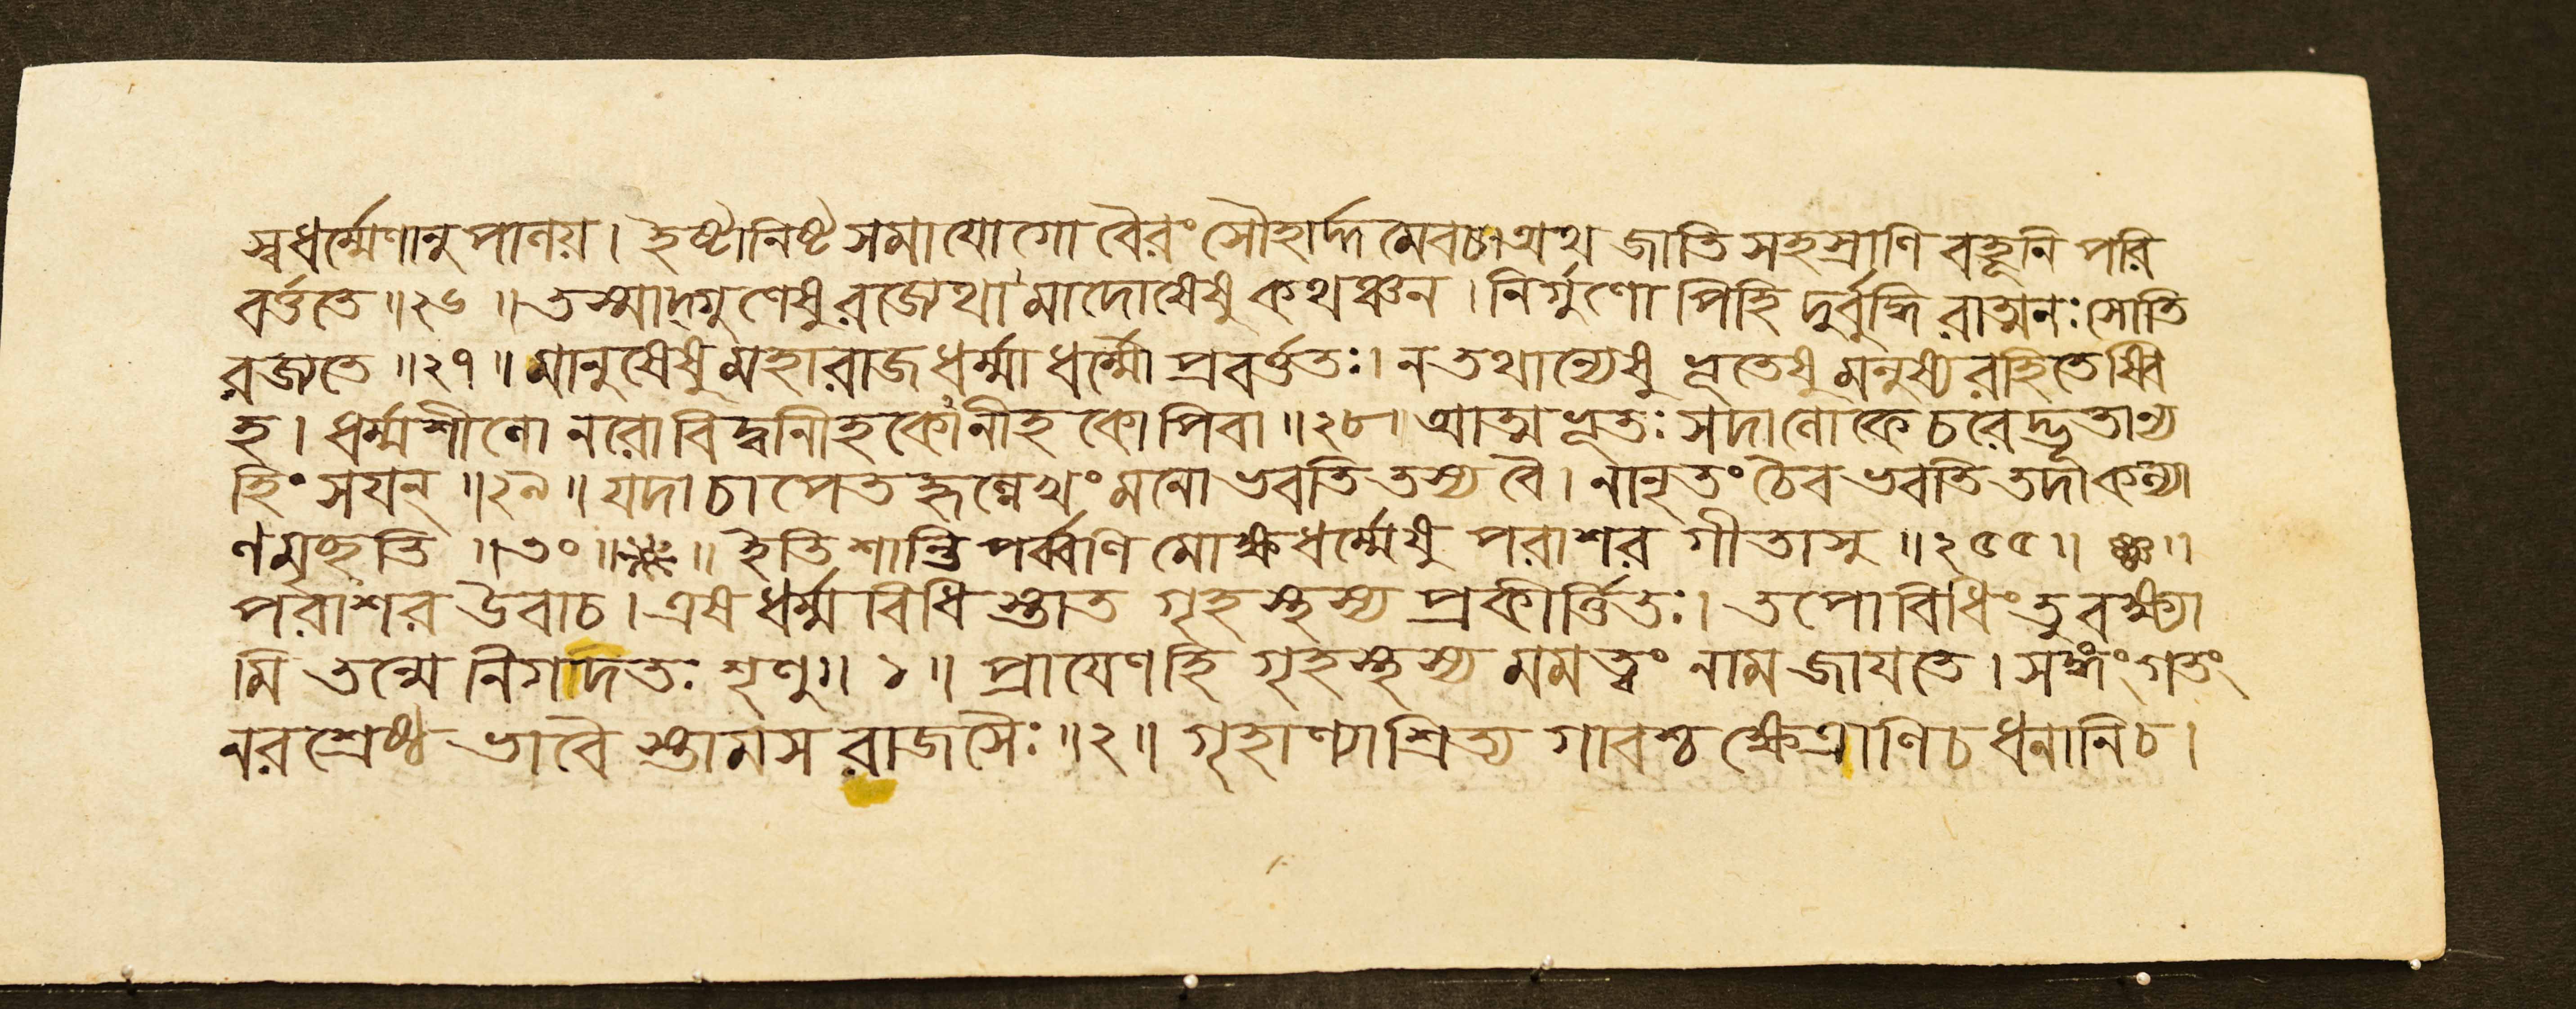 স্বধর্ম্মেণানুপালয়। ইষ্টানিষ্টসমাযোগো বৈরং সৌহার্দ্দমেবচ। অথ জাতি সহস্রাণি বহূনি পরি
বর্ত্ততে ॥২৬॥ তস্মাদ্গুণেষু রজ্যেথা মাদোষেষু কথঞ্চন। নির্গুণো পিহি দুর্বুদ্ধি রাত্মনঃ সোতি
রজ্যতে ॥২৭॥ মানুষেষু মহারাজ ধর্ম্মা ধর্ম্মৌ প্রবর্ত্ততঃ। ন তথান্যেষু ভূতেষু মনুষ্য রহিতেষ্বি
হ। ধর্ম্মশীলো নরো বিদ্বানীহকোনীহ কোপিবা ॥২৮॥ আত্মভূতঃ সদালোকে চরেদ্ভূতান্য
হিংসযন্ ॥২৯॥ যদা চাপেত হৃল্লেখং মনো ভবতি তস্য বৈ। নানৃতং চৈব ভবতি তদা কল্যা
ণমৃচ্ছতি ॥৩০॥ ॥ ইতি শান্তি পর্ব্বণি মোক্ষধর্ম্মেষু পরাশর গীতাসু ॥২৫৫॥
পরাশর উবাচ। এষ ধর্ম্ম বিধি স্তাত গৃহস্থস্য প্রকীর্ত্তিতঃ। তপোবিধিং তু বক্ষ্যা
মি তন্মে নিগদতঃ শৃণু॥ ১॥ প্রাযেণহি গৃহস্থস্য মমত্বং নাম জাযতে। সঙ্গং গতং
নরশ্রেষ্ঠ ভাবৈ স্তামস রাজসৈঃ ॥২॥ গৃহাণ্যাশ্রিত্য গাবশ্চ ক্ষেত্রাণি চ ধনানি চ।